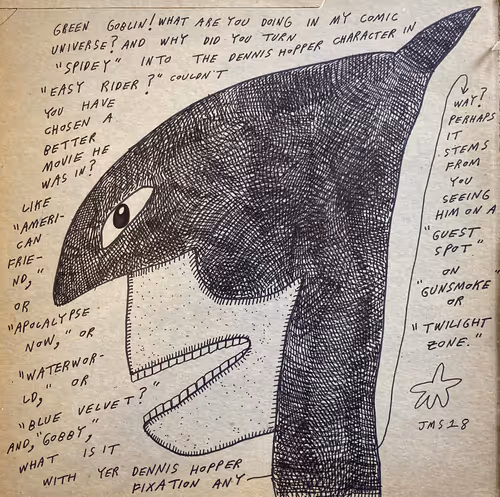 GREEN GOBLIN! WHAT ARE YOU DOING IN MY COMIC
UNIVERSE? AND WHY DID YOU TURN
"SPIDEY" INTO THE DENNIS HOPPER CHARACTER IN
"EASY RIDER?" COULDN'T
YOU HAVE
CHOSEN A
BETTER
MOVIE HE
WAS IN?
LIKE
"AMERI-
CAN
FRIE-
ND,"
OR
"APOCALYPSE
NOW," OR
"WATERWOR-
LD," OR
"BLUE VELVET?"
AND, "GOBBY,"
WHAT IS IT
WITH YER DENNIS HOPPER
FIXATION ANY
WAY?
PERHAPS
IT
STEMS
FROM
YOU
SEEING
HIM ON A
"GUEST
SPOT"
ON
"GUNSMOKE
OR
"TWILIGHT
ZONE."
JMS 18